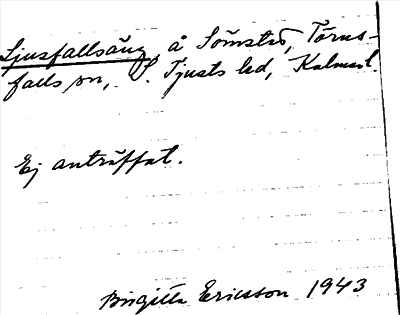 Ljusfallsäng, å Sömstad, Törns-
falls sn, S. Tjusts hd, Kalmar l.
Ej anträffat.
Birgitta Ericsson 1943